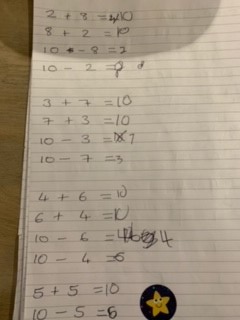 2 + 8 = 10
8 + 2 = 10
10 - 8 = 2
10 - 2 = 8
3 + 7 = 10
7 + 3 = 10
10 - 3 = 7
10 - 7 = 3
4 + 6 = 10
6 + 4 = 10
10 - 6 = 4
10 - 4 = 6
5 + 5 = 10
10 - 5 = 5